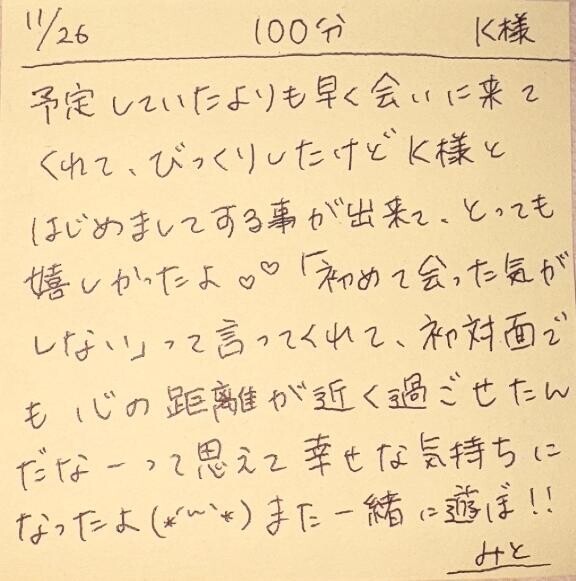 11/26 100分 K様
予定していたよりも早く会いに来て
くれて、びっくりしたけどK様と
はじめましてする事が出来て、とっても
嬉しかったよ♡♡「初めて会った気が
しない」って言ってくれて、初対面で
も心の距離が近く過ごせたん
だなーって思えて幸せな気持ちに
なったよ(*´꒳`*)また一緒に遊ぼ!!
みと